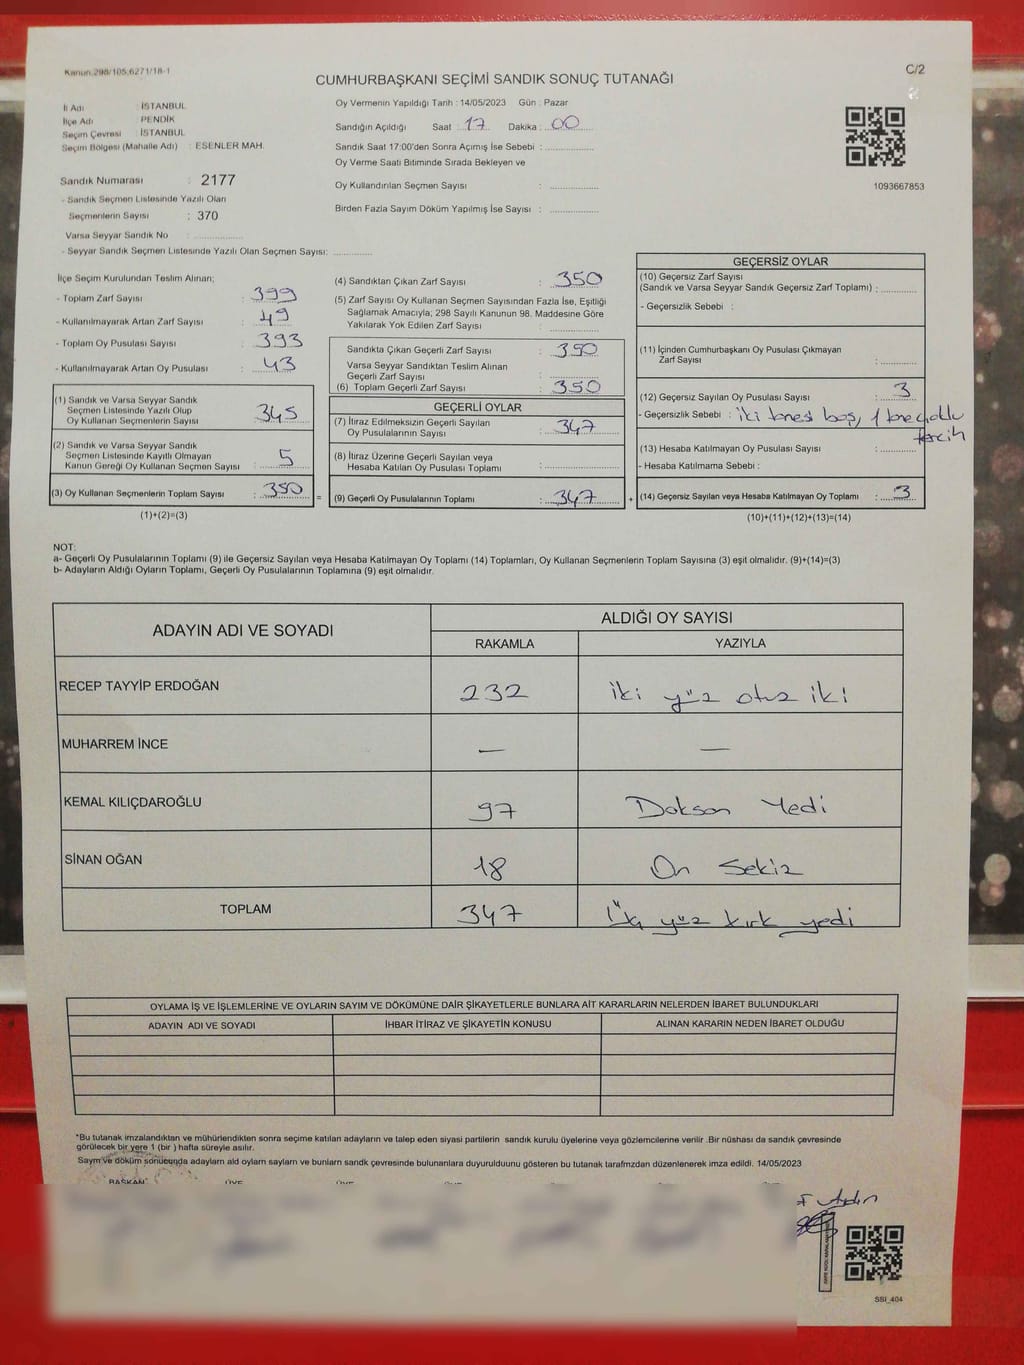 Kanun 298/105,6271/18-1
C/2
CUMHURBAŞKANI SEÇİMİ SANDIK SONUÇ TUTANAĞI
İl Adı : İSTANBUL
İlçe Adı : PENDİK
Seçim Çevresi : İSTANBUL
Seçim Bölgesi (Mahalle Adı) : ESENLER MAH.
Sandık Numarası : 2177
- Sandık Seçmen Listesinde Yazılı Olan
Seçmenlerin Sayısı : 370
Varsa Seyyar Sandık No : ................
- Seyyar Sandık Seçmen Listesinde Yazılı Olan Seçmen Sayısı: ............
Oy Vermenin Yapıldığı Tarih : 14/05/2023 Gün : Pazar
Sandığın Açıldığı Saat : 17 Dakika : 00
Sandık Saat 17:00'den Sonra Açımış İse Sebebi : ................
Oy Verme Saati Bitiminde Sırada Bekleyen ve
Oy Kullandırılan Seçmen Sayısı : ................
Birden Fazla Sayım Döküm Yapılmış İse Sayısı : ................
1093667853
İlçe Seçim Kurulundan Teslim Alınan;
- Toplam Zarf Sayısı : 399
- Kullanılmayarak Artan Zarf Sayısı : 49
- Toplam Oy Pusulası Sayısı : 393
- Kullanılmayarak Artan Oy Pusulası : 43
(1) Sandık ve Varsa Seyyar Sandık
Seçmen Listesinde Yazılı Olup
Oy Kullanan Seçmenlerin Sayısı : 345
(2) Sandık ve Varsa Seyyar Sandık
Seçmen Listesinde Kayıtlı Olmayan
Kanun Gereği Oy Kullanan Seçmen Sayısı : 5
(3) Oy Kullanan Seçmenlerin Toplam Sayısı : 350 =
(1)+(2)=(3)
(4) Sandıktan Çıkan Zarf Sayısı : 350
(5) Zarf Sayısı Oy Kullanan Seçmen Sayısından Fazla İse, Eşitliği
Sağlamak Amacıyla; 298 Sayılı Kanunun 98. Maddesine Göre
Yakılarak Yok Edilen Zarf Sayısı : ................
Sandıkta Çıkan Geçerli Zarf Sayısı : 350
Varsa Seyyar Sandıktan Teslim Alınan
Geçerli Zarf Sayısı : ................
(6) Toplam Geçerli Zarf Sayısı : 350
GEÇERLİ OYLAR
(7) İtiraz Edilmeksizin Geçerli Sayılan
Oy Pusulalarının Sayısı : 347
(8) İtiraz Üzerine Geçerli Sayılan veya
Hesaba Katılan Oy Pusulası Toplamı : ................
(9) Geçerli Oy Pusulalarının Toplamı : 347 +
GEÇERSİZ OYLAR
(10) Geçersiz Zarf Sayısı
(Sandık ve Varsa Seyyar Sandık Geçersiz Zarf Toplamı) : ............
- Geçersizlik Sebebi :
(11) İçinden Cumhurbaşkanı Oy Pusulası Çıkmayan
Zarf Sayısı : ............
(12) Geçersiz Sayılan Oy Pusulası Sayısı : 3
- Geçersizlik Sebebi : iki tanesi boş, 1 tane çoklu
tercih
(13) Hesaba Katılmayan Oy Pusulası Sayısı : ............
- Hesaba Katılmama Sebebi :
(14) Geçersiz Sayılan veya Hesaba Katılmayan Oy Toplamı : 3
(10)+(11)+(12)+(13)=(14)
NOT:
a- Geçerli Oy Pusulalarının Toplamı (9) ile Geçersiz Sayılan veya Hesaba Katılmayan Oy Toplamı (14) Toplamları, Oy Kullanan Seçmenlerin Toplam Sayısına (3) eşit olmalıdır. (9)+(14)=(3)
b- Adayların Aldığı Oyların Toplamı, Geçerli Oy Pusulalarının Toplamına (9) eşit olmalıdır.
ADAYIN ADI VE SOYADI
ALDIĞI OY SAYISI
RAKAMLA YAZIYLA
RECEP TAYYİP ERDOĞAN 232 iki yüz otuz iki
MUHARREM İNCE — —
KEMAL KILIÇDAROĞLU 97 Doksan Yedi
SİNAN OĞAN 18 On Sekiz
TOPLAM 347 Üç yüz kırk yedi
OYLAMA İŞ VE İŞLEMLERİNE VE OYLARIN SAYIM VE DÖKÜMÜNE DAİR ŞİKAYETLERLE BUNLARA AİT KARARLARIN NELERDEN İBARET BULUNDUKLARI
ADAYIN ADI VE SOYADI İHBAR İTİRAZ VE ŞİKAYETİN KONUSU ALINAN KARARIN NEDEN İBARET OLDUĞU
*Bu tutanak imzalandıktan ve mühürlendikten sonra seçime katılan adayların ve talep eden siyasi partilerin sandık kurulu üyelerine veya gözlemcilerine verilir .Bir nüshası da sandık çevresinde
görülecek bir yere 1 (bir ) hafta süreyle asılır.
Sayım ve döküm sonucunda adayların ald oyların sayların ve bunların sandk çevresinde bulunanlara duyurulduunu gösteren bu tutanak tarafmzdan düzenlenerek imza edildi. 14/05/2023
BAŞKAN ÜYE ÜYE
Aydın
SSI_404